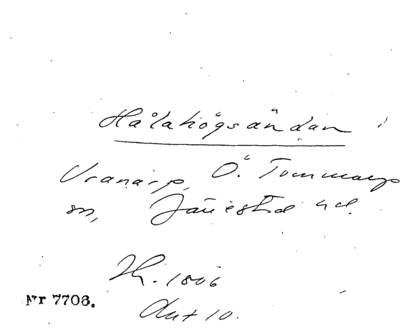 Hålahögsändan i
Vranarp, Ö. Tommarps
sn, Järrestad hd.
Th. 1806
Akt 10.
Nr 7706.